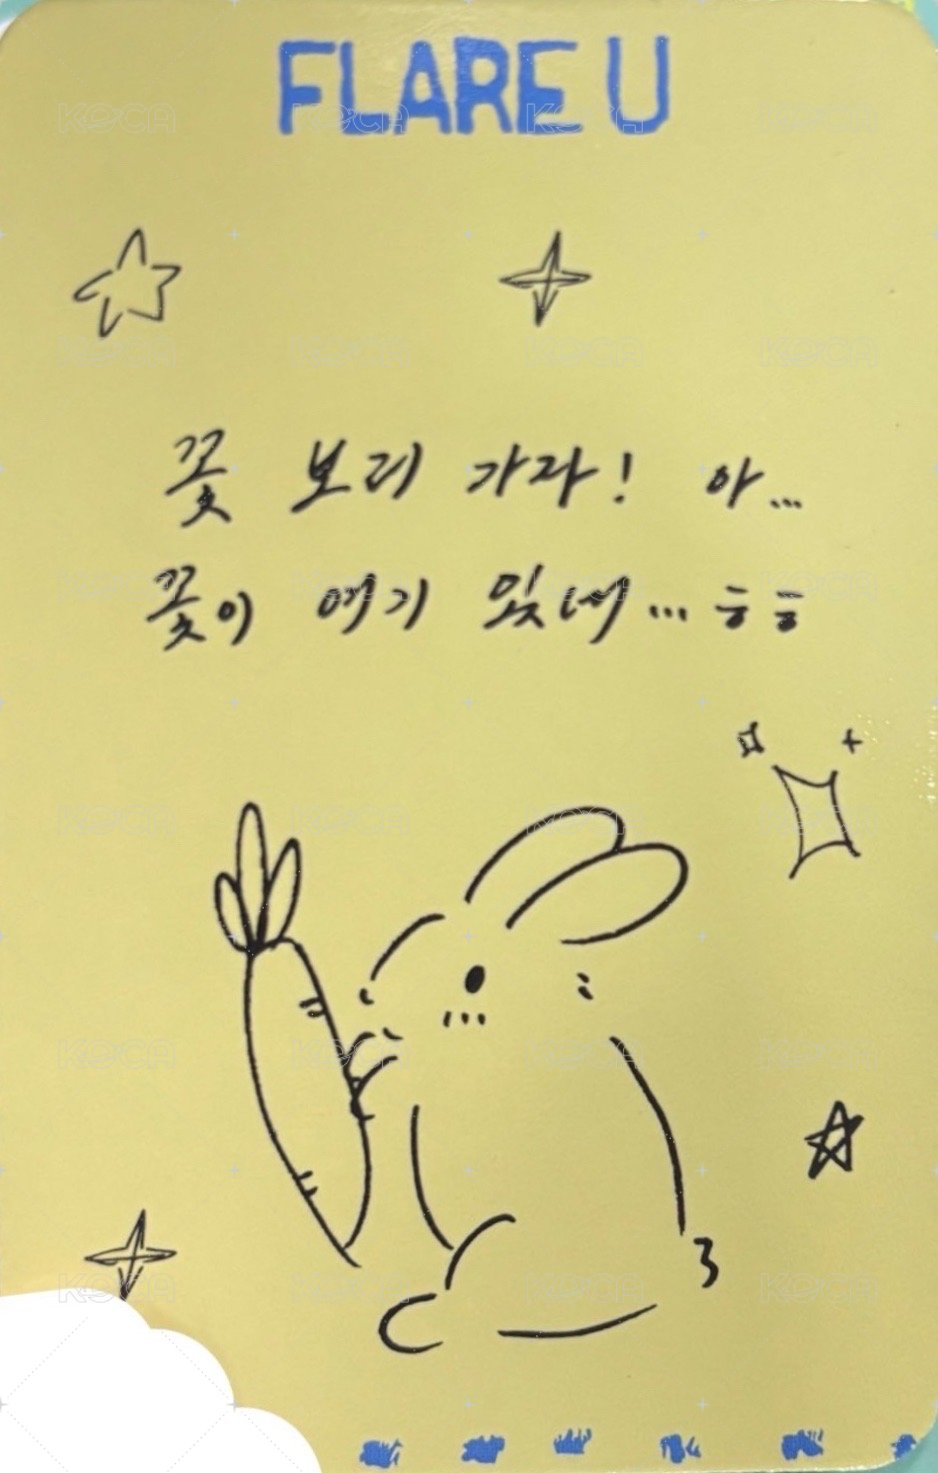 FLARE U
꽃 보러 가자! 아...
꽃이 여기 있네...ㅎㅎ
KOCA